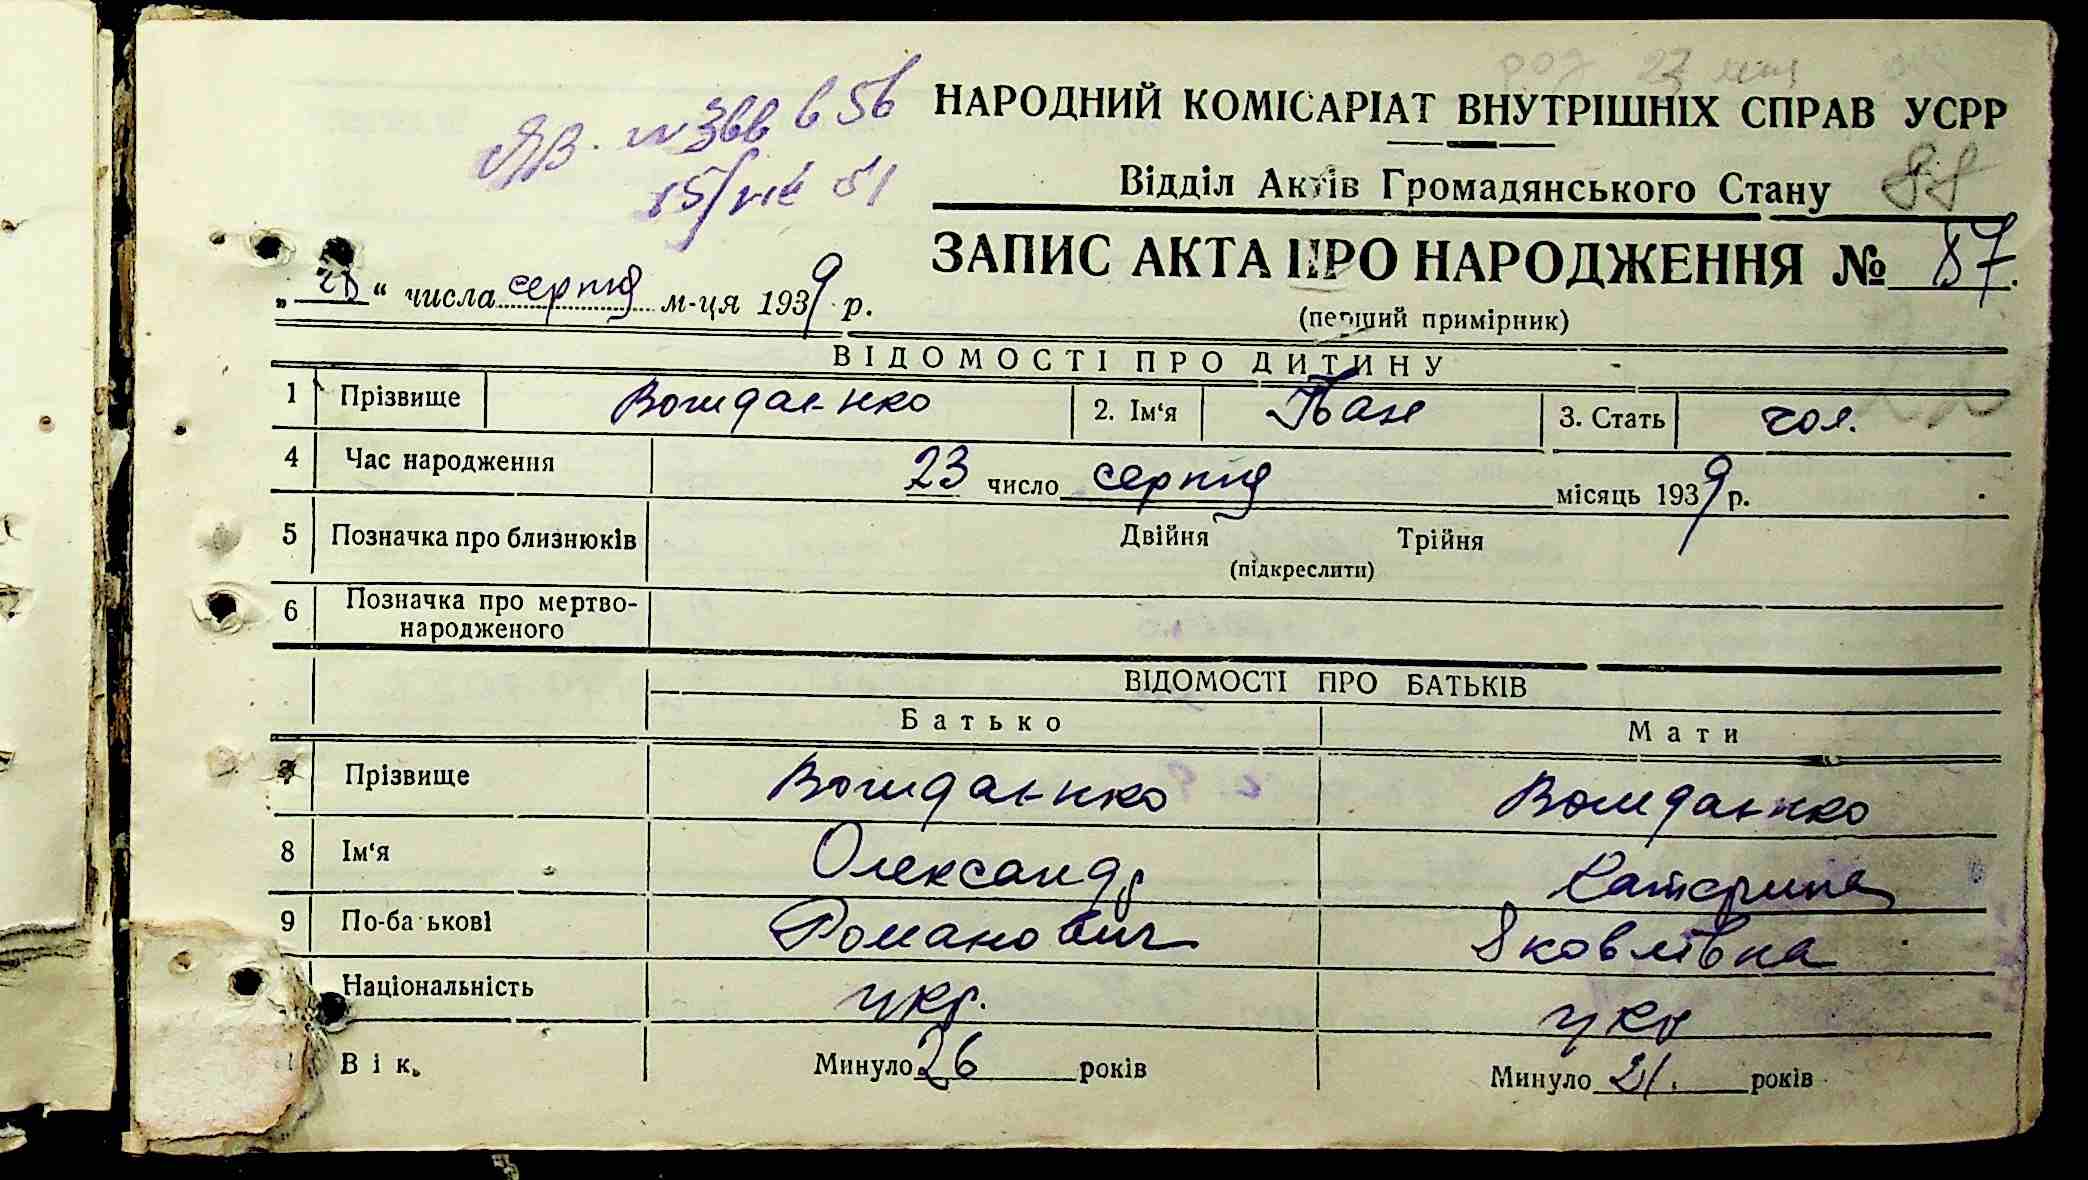 НАРОДНИЙ КОМІСАРІАТ ВНУТРІШНІХ СПРАВ УСРР
Відділ Актів Громадянського Стану
ЗАПИС АКТА ПРО НАРОДЖЕННЯ № 87.
(перший примірник)
„28“ числа серпня м-ця 1939 р.
ВІДОМОСТІ ПРО ДИТИНУ
1 Прізвище 2. Ім‘я Іван 3. Стать чол.
4 Час народження 23 число серпня місяць 1939 р.
5 Позначка про близнюків Двійня Трійня
(підкреслити)
6 Позначка про мертво-
народженого
ВІДОМОСТІ ПРО БАТЬКІВ
Батько Мати
7 Прізвище
8 Ім‘я Олександр Катерина
9 По-ба ькові Романович Яковлівна
Національність укр. укр
Вік. Минуло 26 років Минуло 21. років